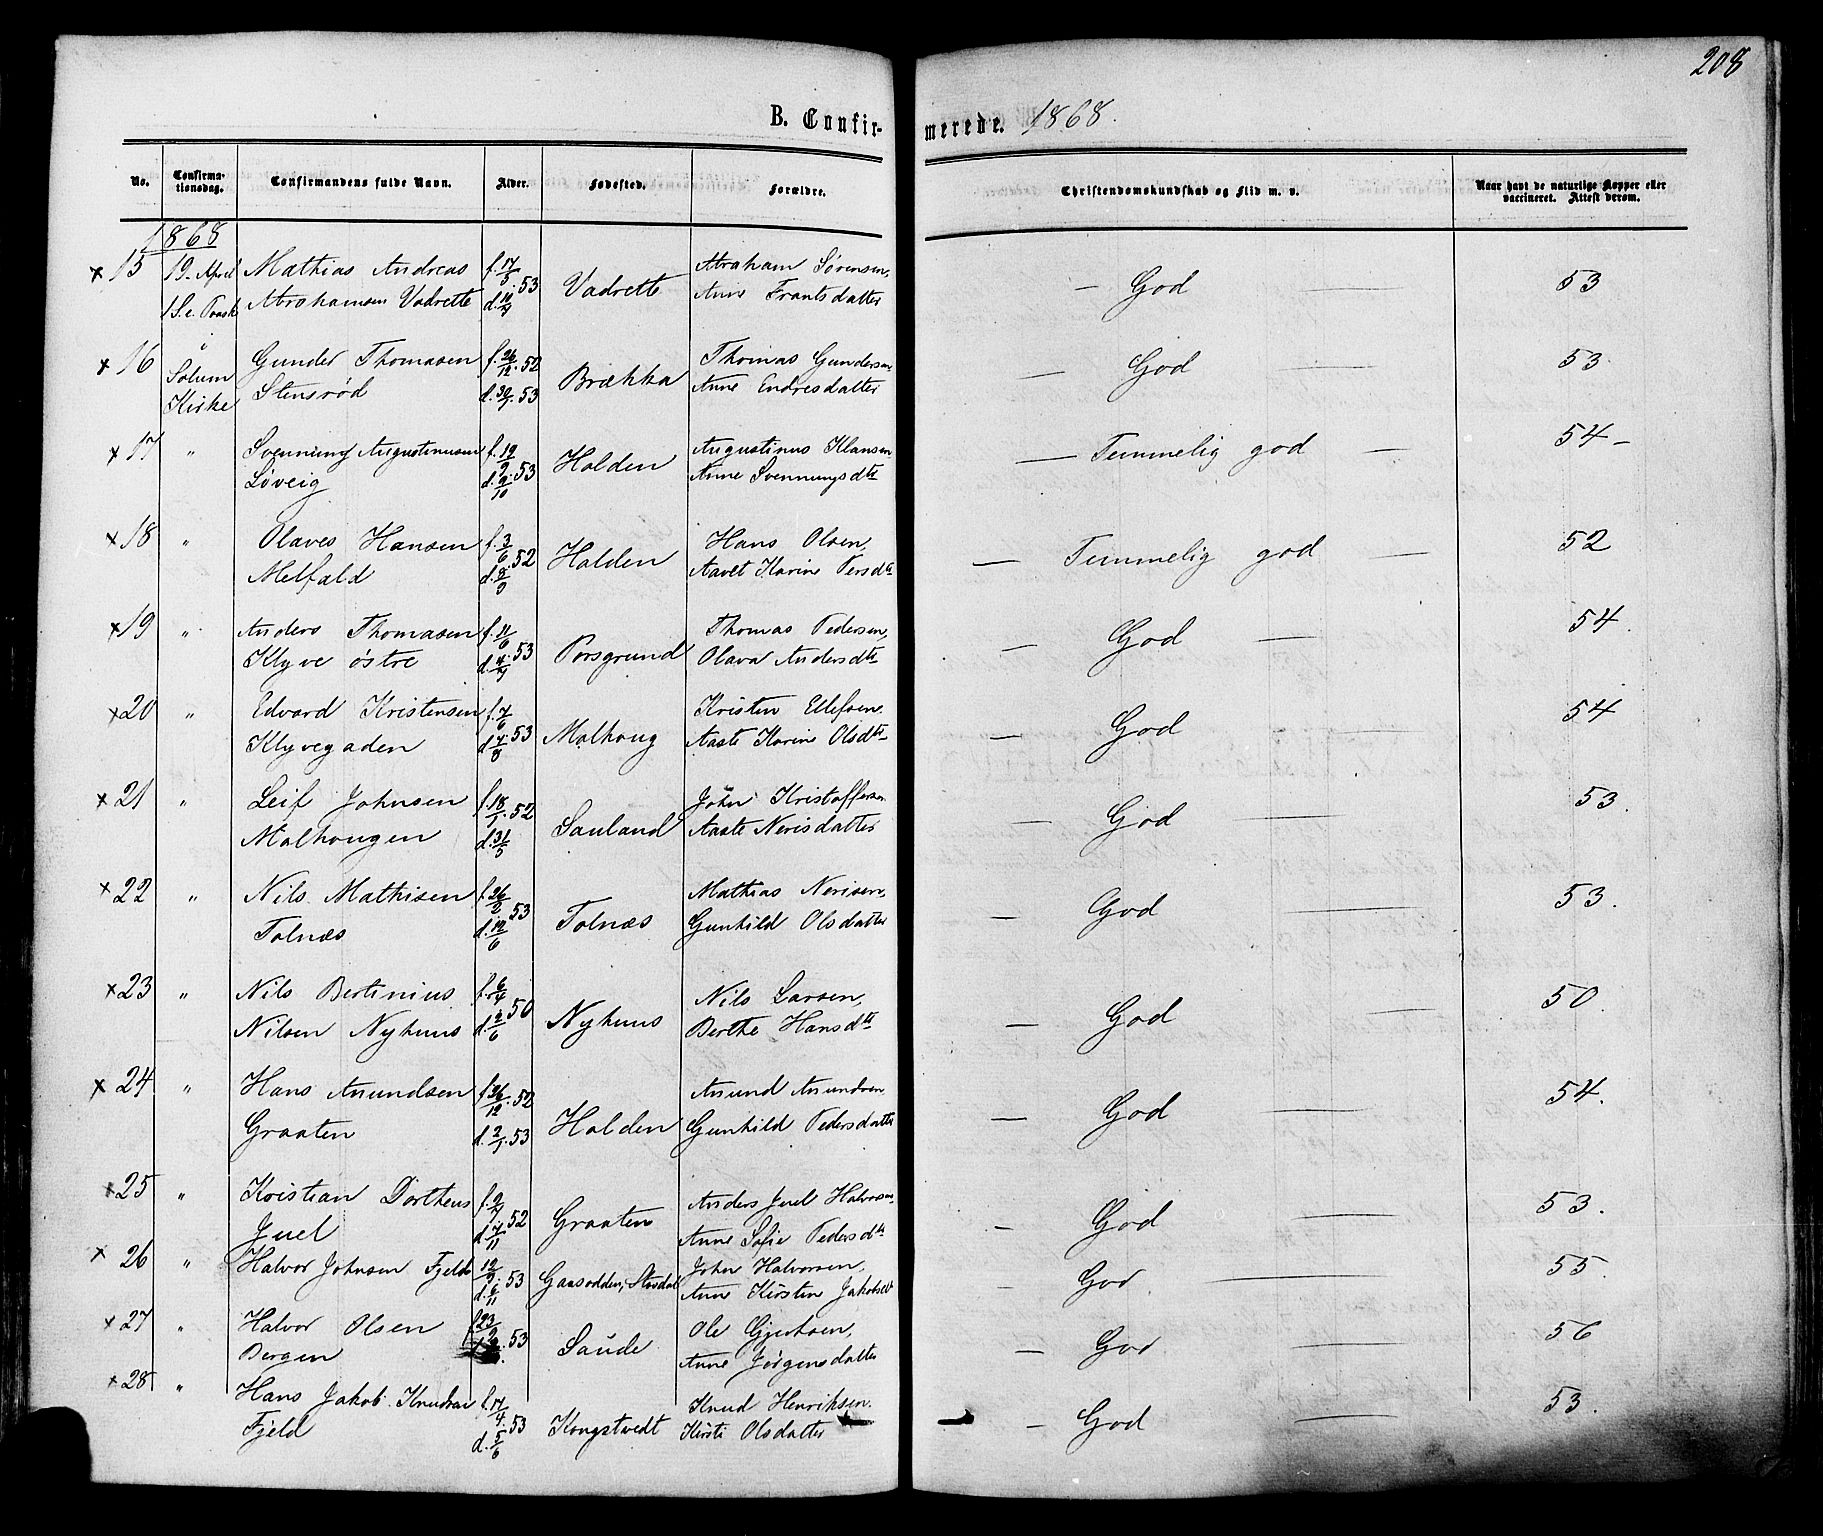 208
B. Confirmerede. 1868.
No. Confirmationsdag. Confirmandens fulde Navn. Alder. Fødested. Forældre. Christendomskundskab og Flid m. v. Naar havt de naturlige Kopper eller vaccineret. Attest derom.
1868
15 19. April Mathias Andreas f. 17/5 53 Vadrette Abraham Sørensen, — God — 53
1 S. e. Paask Abrahamsen Vadrette d. Anne Frantsdatter
16 Solum Gunder Thomasen f. 26/12 52 Brækka Thomas Gundersen — God — 53.
Kirke Stensrød d. 30/1 53 Anne Endresdatter
17 " Svenning Augustinusen f. 19/9 53 Holden Augustinus Klausen — Temmelig god — 54 —
Løveig d. 9/10 Anne Svennungsdtr
18 " Olaves Hansen f. 3/6 52 Holden Hans Olsen, — Temmelig god — 52
Melfald d. Aavet Karine Persdtr
19 " Anders Thomasen f. 11/6 53 Porsgrund Thomas Pedersen, — God — 54.
Klyve østre d. Olava Andersdtr
20 " Edvard Kristensen f. 7/6 53 Molhoug Kristen Ellefsen — God — 54
Klyvegaden d. 7/8 Aaste Karine Olsdtr
21 " Leif Johnsen f. 18/1 52 Sauland John Kristoffersen — God — 53.
Molhougen d. 31/5 Aaste Nerisdatter
22 " Nils Mathisen f. 26/2 53 Tolnæs Mathias Nerisen, — God — 53.
Tolnæs d. 12/6 Gunhild Olsdatter
23 " Nils Bertinius f. 6/4 50 Nyhuus Nils Larsen, — God — 50.
Nilsen Nyhuus d. 2/6 Berthe Hansdtr
24 " Hans Amundsen f. 26/12 52 Holden Amund Amundsen — God — 54.
Graaten d. 2/1 53 Gunhild Pedersdatter
25 " Kristian Dortheus f. 2/7 52 Graaten Anders Juel Halvorsen, — God — 53.
Juel d. 7/11 Anne Sofie Pedersdtr
26 " Halvor Johnsen Fjeld 12/9 53 Gaasodden, John Halvorsen, — God — 55.
d. 6/11 Anne Kirstine Jakobsdt
27 " Halvor Olsen f. 23/2 53 Saude Ole Gjertsen, — God — 56
Bergan Anne Jørgensdatter
28 " Hans Jakob Knudsen f. 17/4 53 Kongstvedt Knud Henriksen — God — 53.
Fjeld d. 5/6 Kirsti Olsdatter